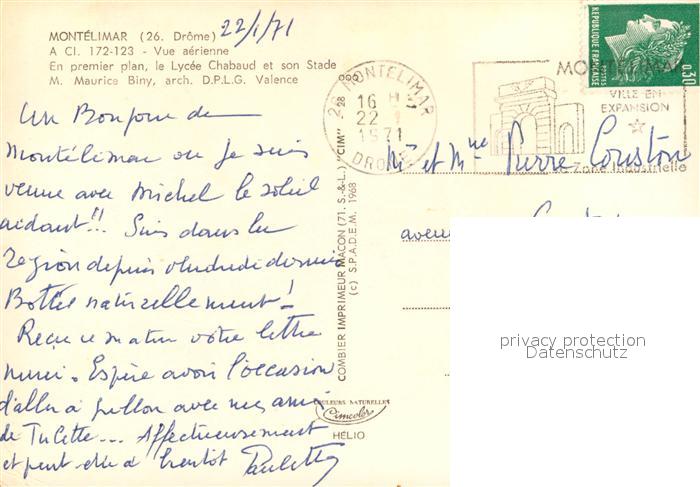 MONTÉLIMAR (26. Drôme) 22/1/71
A CI. 172-123 - Vue aérienne
En premier plan, le Lycée Chabaud et son Stade
M. Maurice Biny, arch. D.P.L.G. Valence
Un Bonjour de
Montélimar ou je suis
venue avec Michel le soleil
aidant!! Suis dans la
Région depuis vendredi dernier
Bottée naturellement!
Reçu ce matin votre lettre
merci. Espère avoir l'occasion
d'aller à Grillon avec mes amis
de Tulette... Affectueusement
et peut être à bientôt Paulette
COMBIER IMPRIMEUR MACON (71. S.-&-L.) "CIM"
(c) S.P.A.D.E.M. 1968
COULEURS NATURELLES
Cimcolor
HÉLIO
26 MONTELIMAR
16 H
22 1
1971
DROME
MONTELIMAR
VILLE EN
EXPANSION
Zone Industrielle
REPUBLIQUE FRANÇAISE
POSTES
0,30
Mr et Mme Pierre Couston
avenue
privacy protection
Datenschutz